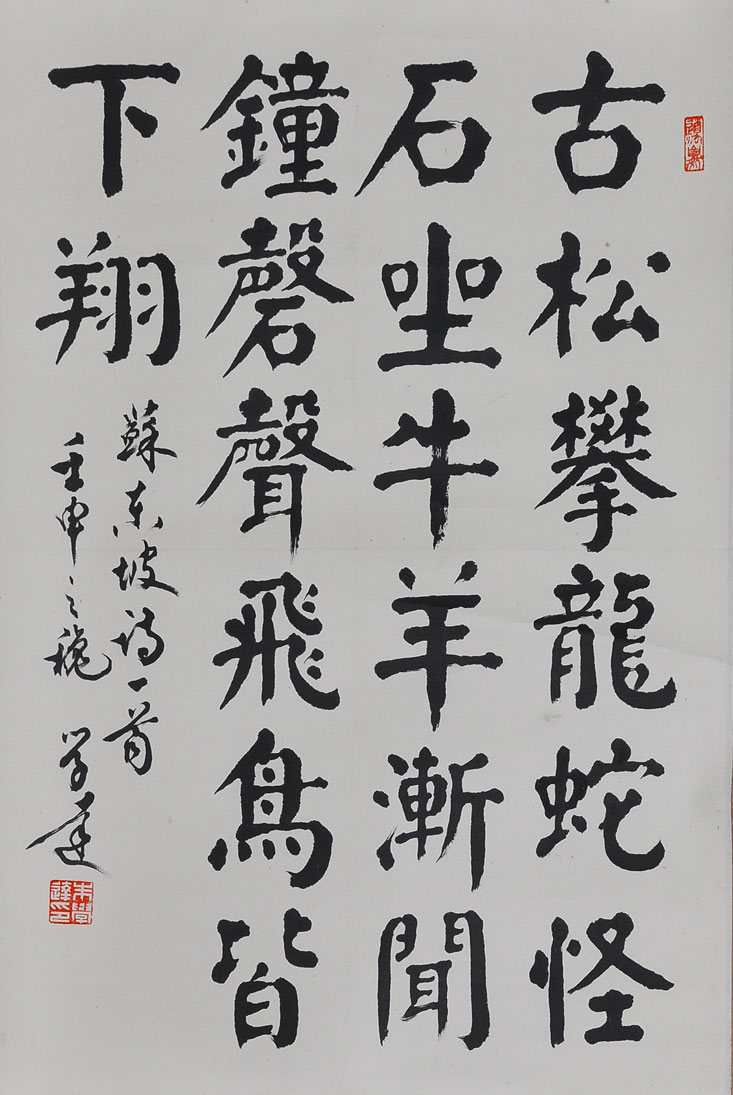 古松攀龍蛇怪
石坐牛羊漸聞
鐘磬聲飛鳥皆
下翔
蘇東坡詩一首
壬申之秋 学達
朱學達印